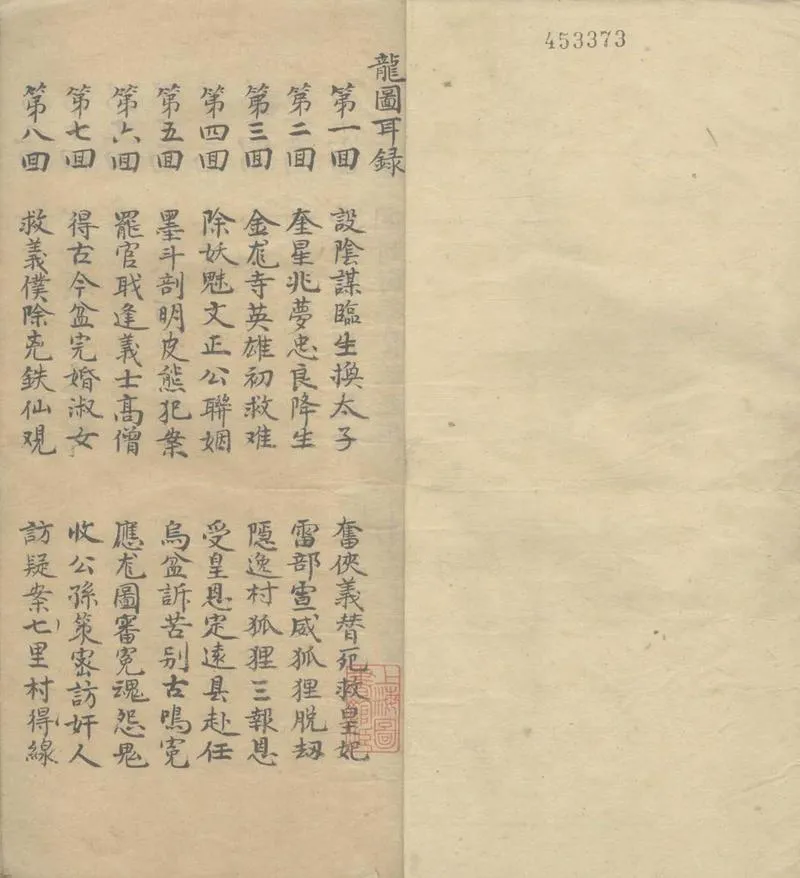 453373
龍圖耳録
第一回 設陰謀臨生換太子 奮俠義替死救皇妃
第二回 奎星兆夢忠良降生 雷部宣威狐狸脱劫
第三回 金龙寺英雄初救难 隱逸村狐狸三報恩
第四回 除妖魅文正公聯姻 受皇恩定遠县赴任
第五回 墨斗剖明皮熊犯案 烏盆訴苦别古鳴冤
第六回 罷官戢逢義士高僧 應龙圖審冤魂怨鬼
第七回 得古今盆完婚淑女 收公孫策密訪奸人
第八回 救義僕除兇鉄仙观 訪疑案七里村得線
上海圖書館藏